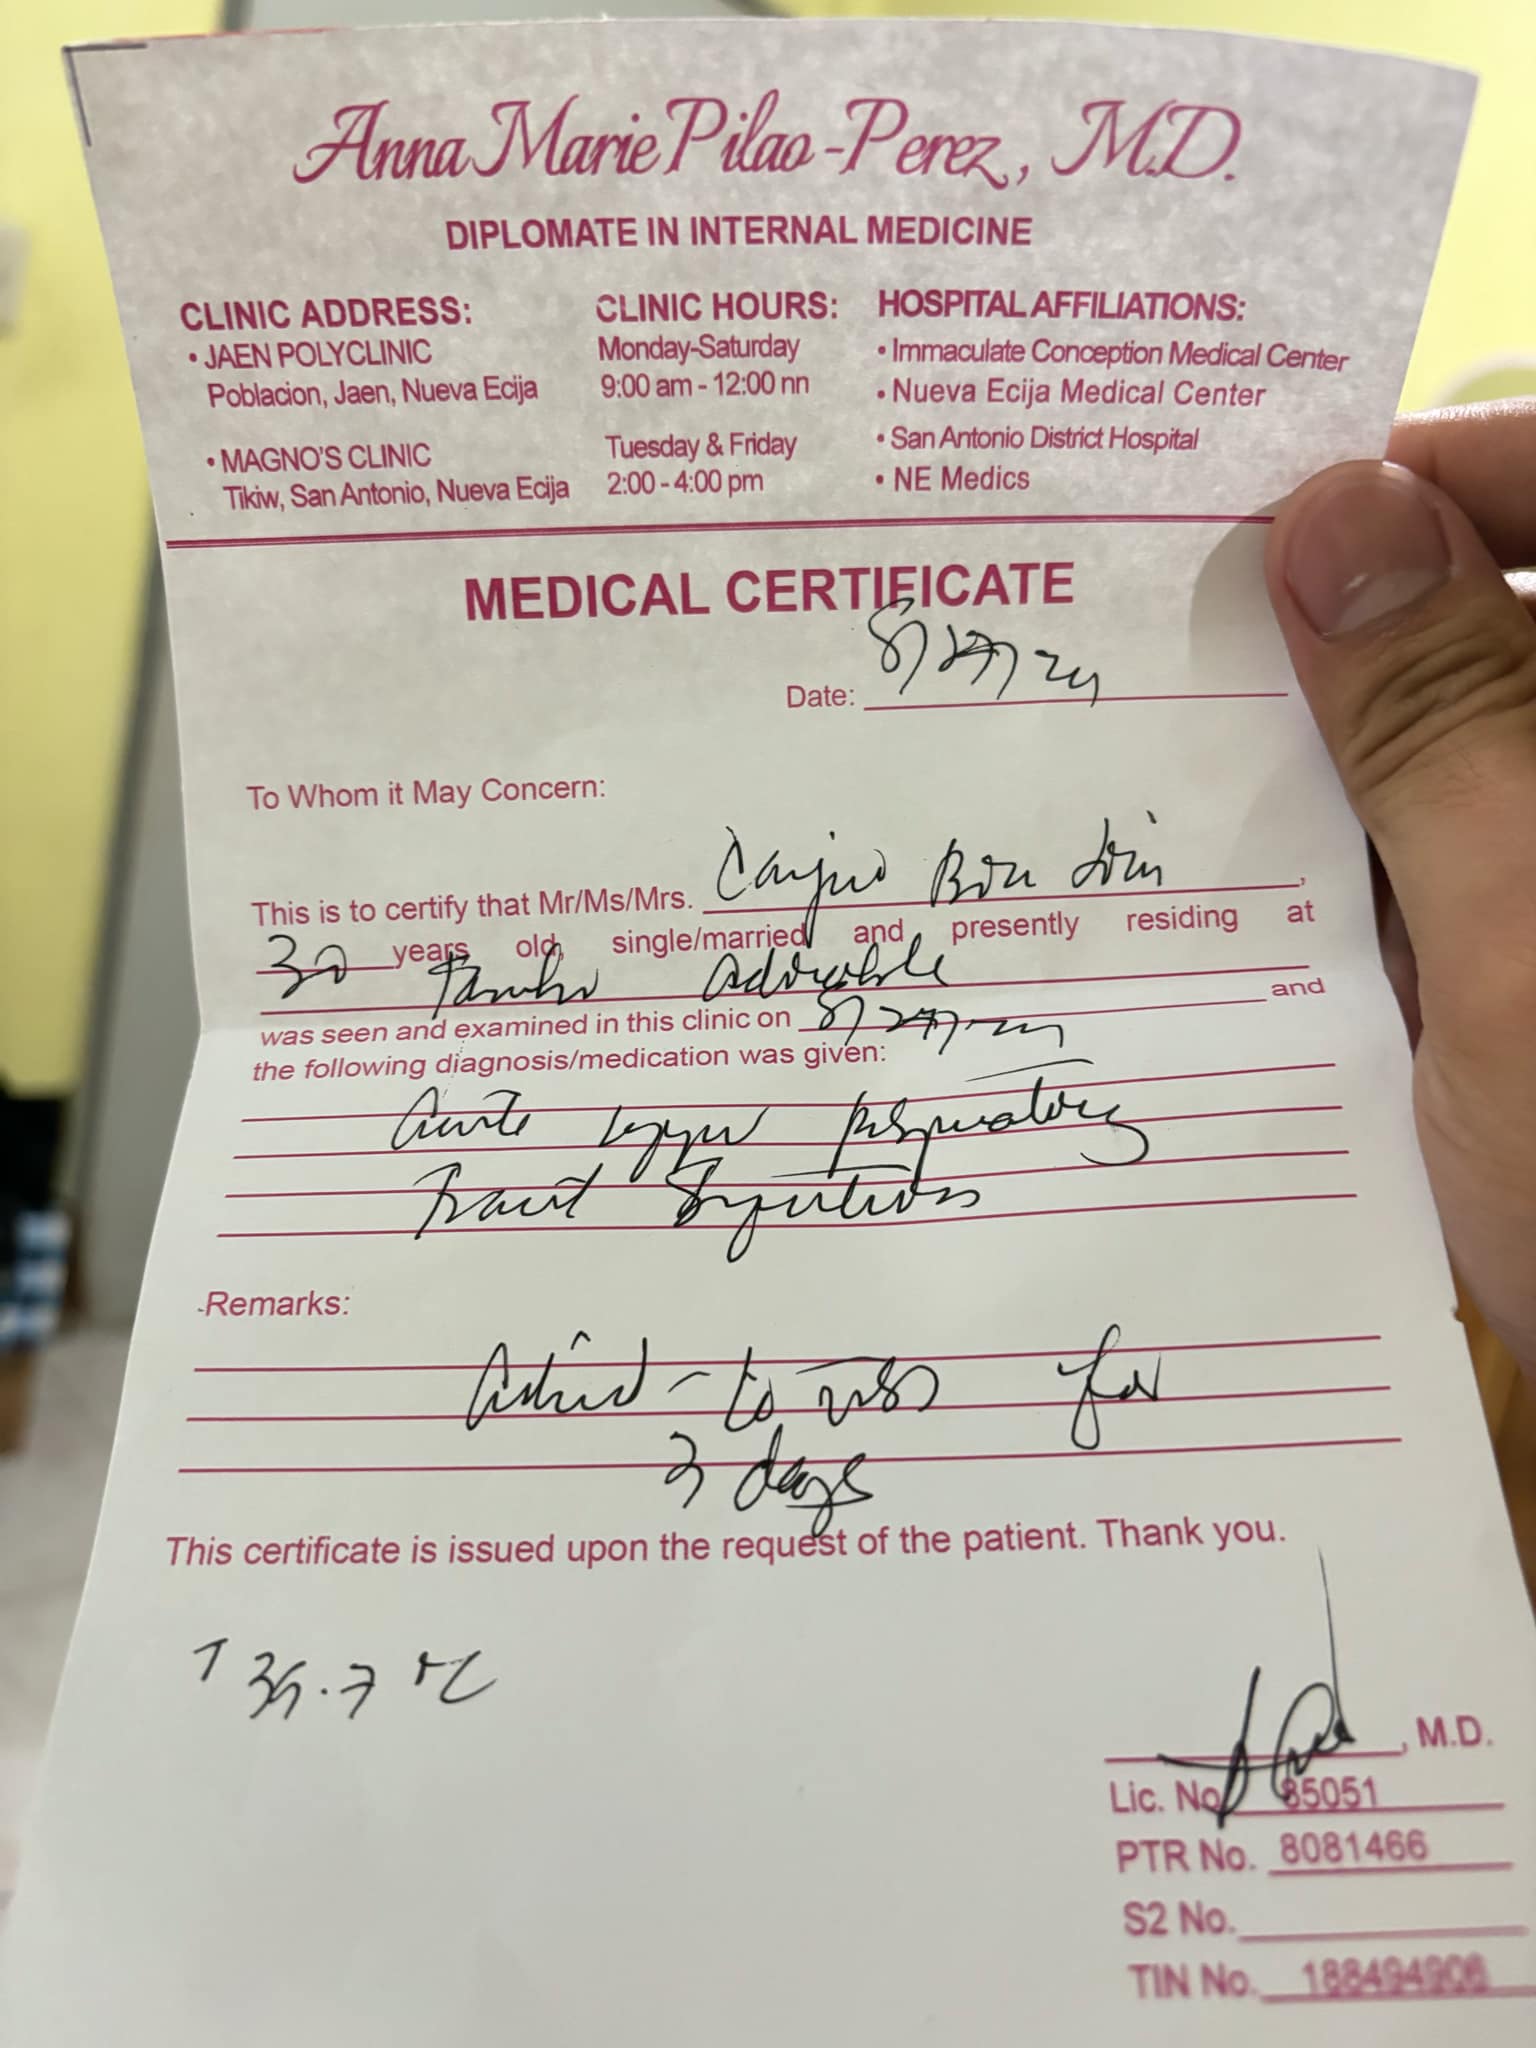 Anna Marie Pilao-Perez, M.D.
DIPLOMATE IN INTERNAL MEDICINE
CLINIC ADDRESS:
• JAEN POLYCLINIC
Poblacion, Jaen, Nueva Ecija
• MAGNO'S CLINIC
Tikiw, San Antonio, Nueva Ecija
CLINIC HOURS:
Monday-Saturday
9:00 am - 12:00 nn
Tuesday & Friday
2:00 - 4:00 pm
HOSPITAL AFFILIATIONS:
• Immaculate Conception Medical Center
• Nueva Ecija Medical Center
• San Antonio District Hospital
• NE Medics
MEDICAL CERTIFICATE
Date: 8/27/24
To Whom it May Concern:
This is to certify that Mr/Ms/Mrs. Bon ,
30 years old, single/married and presently residing at
Tambo Adorable
was seen and examined in this clinic on 8/27/24 and
the following diagnosis/medication was given:
Acute upper respiratory
Tract Infection
Remarks:
Advised to rest for
3 days
This certificate is issued upon the request of the patient. Thank you.
T 35.7 °C
, M.D.
Lic. No. 85051
PTR No. 8081466
S2 No.
TIN No. 188494906